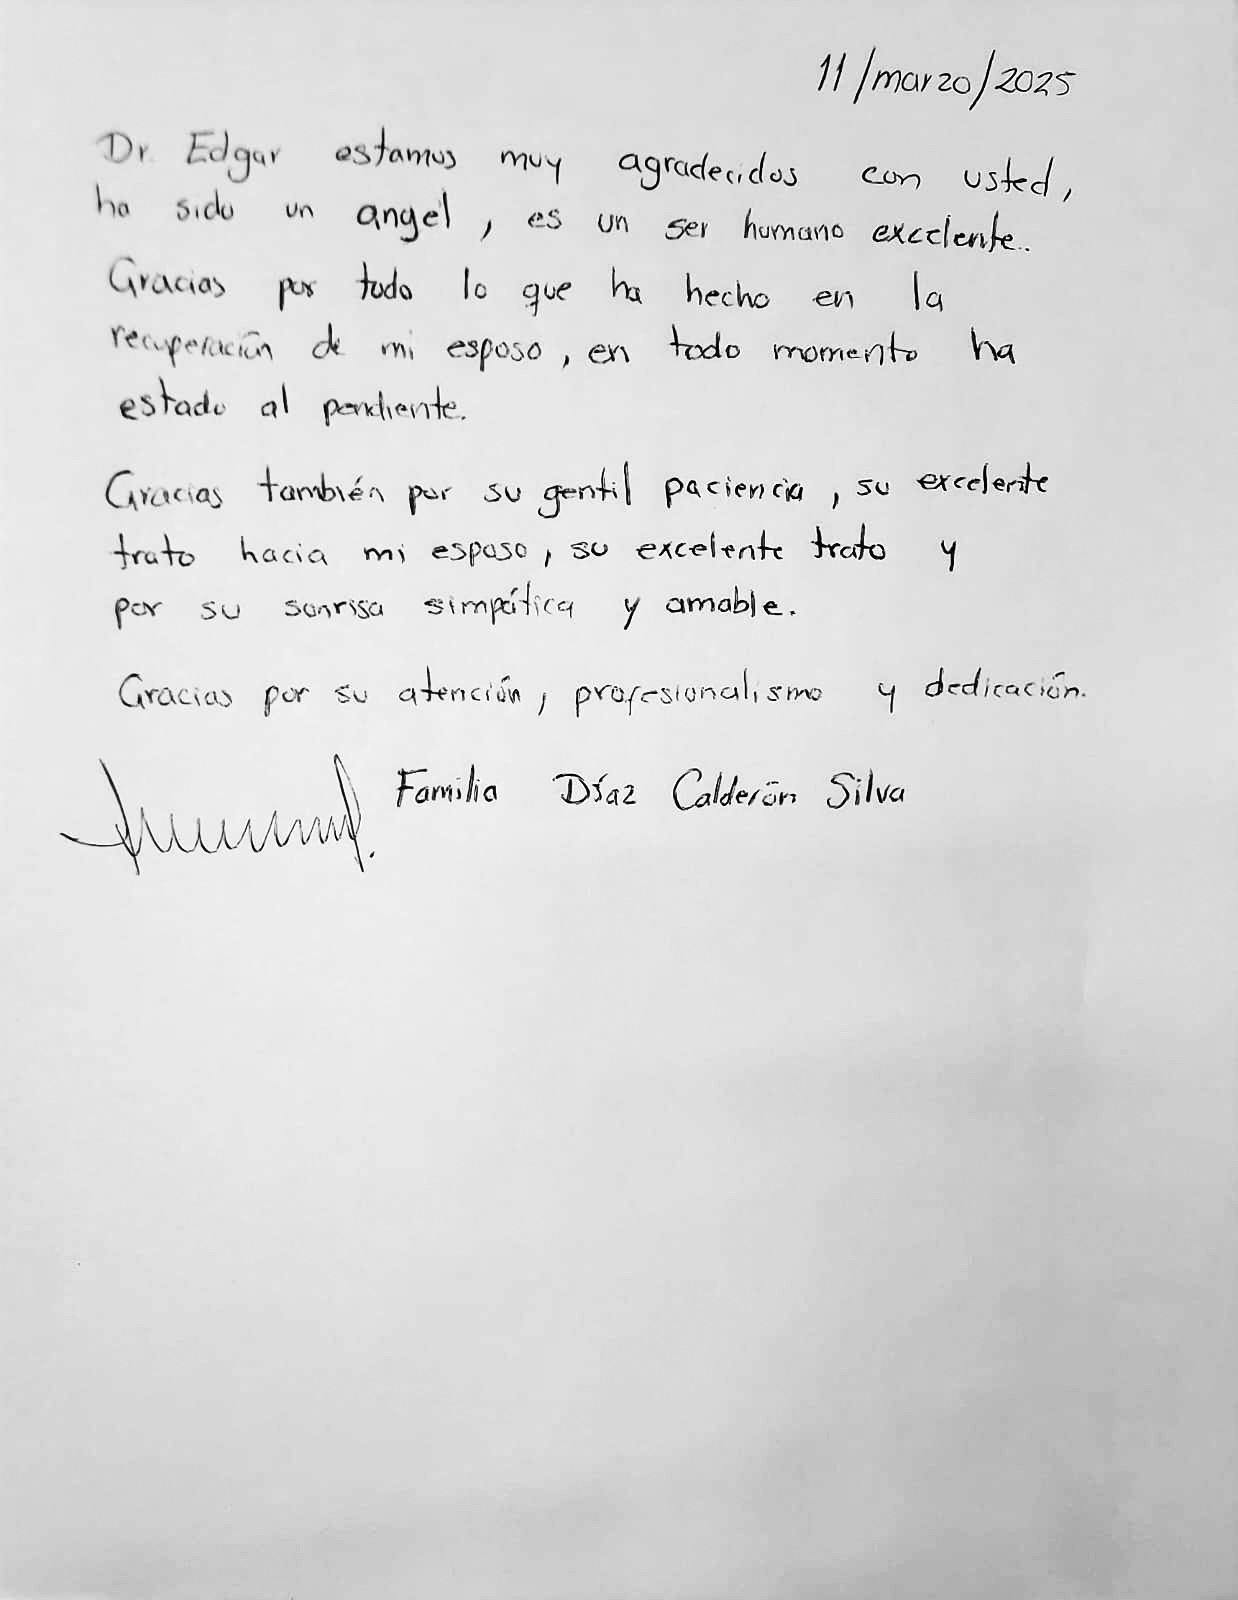 11/marzo/2025
Dr. Edgar estamos muy agradecidos con usted,
ha sido un angel, es un ser humano excelente.
Gracias por todo lo que ha hecho en la
recuperación de mi esposo, en todo momento ha
estado al pendiente.
Gracias también por su gentil paciencia, su excelente
trato hacia mi esposo, su excelente trato y
por su sonrisa simpática y amable.
Gracias por su atención, profesionalismo y dedicación.
Familia Díaz Calderón Silva